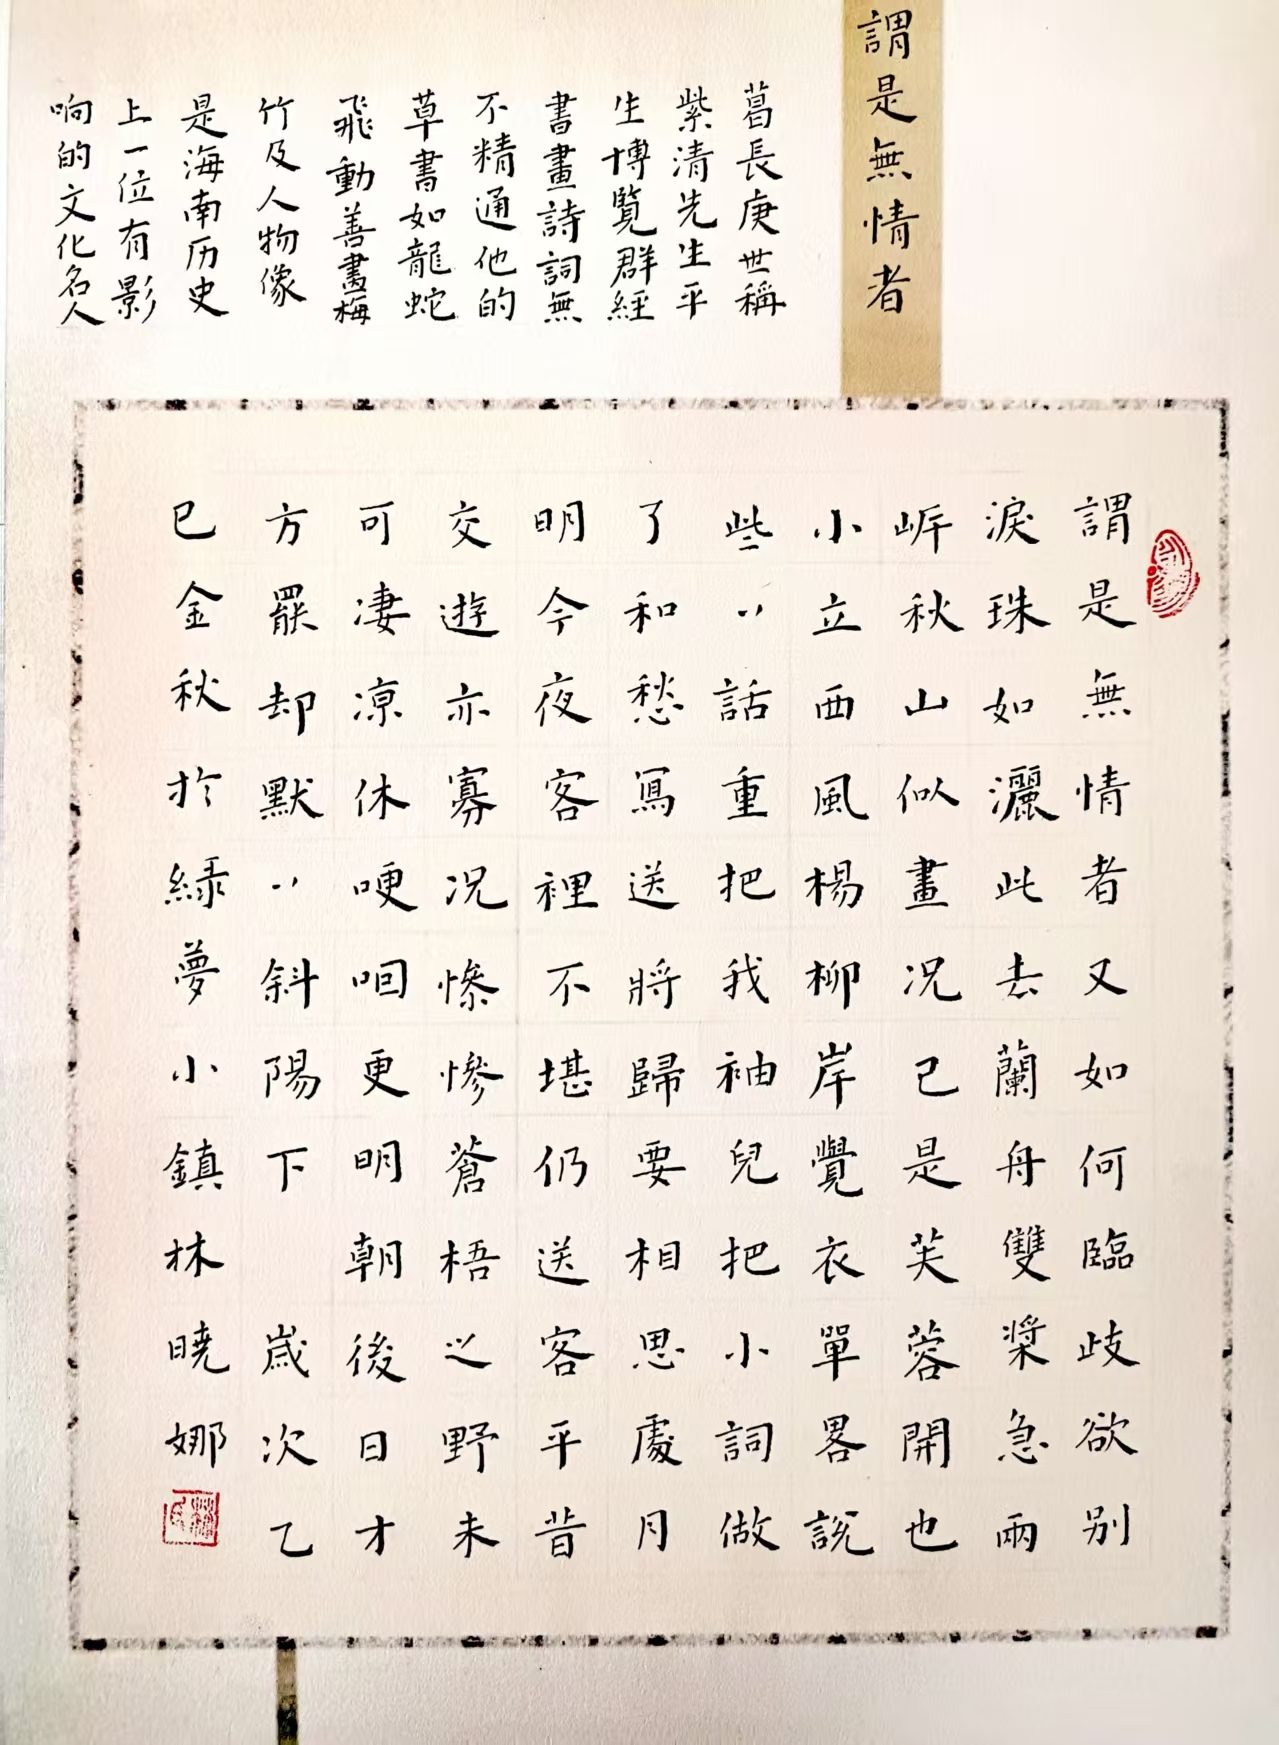 謂是無情者
葛長庚世稱
紫清先生平
生博覧群經
書畫詩詞無
不精通他的
草書如龍蛇
飛動善畫梅
竹及人物像
是海南历史
上一位有影
响的文化名人
謂是無情者又如何臨歧欲别
淚珠如灑此去蘭舟雙槳急兩
岍秋山似畫況已是芙蓉開也
小立西風楊柳岸覺衣單畧説
些〻話重把我袖兒把小詞做
了和愁寫送將歸要相思處月
明今夜客裡不堪仍送客平昔
交遊亦寡況慘慘蒼梧之野未
可凄凉休哽咽更明朝後日才
方罷却默〻斜陽下 歲次乙
巳金秋於緑夢小鎮林曉娜